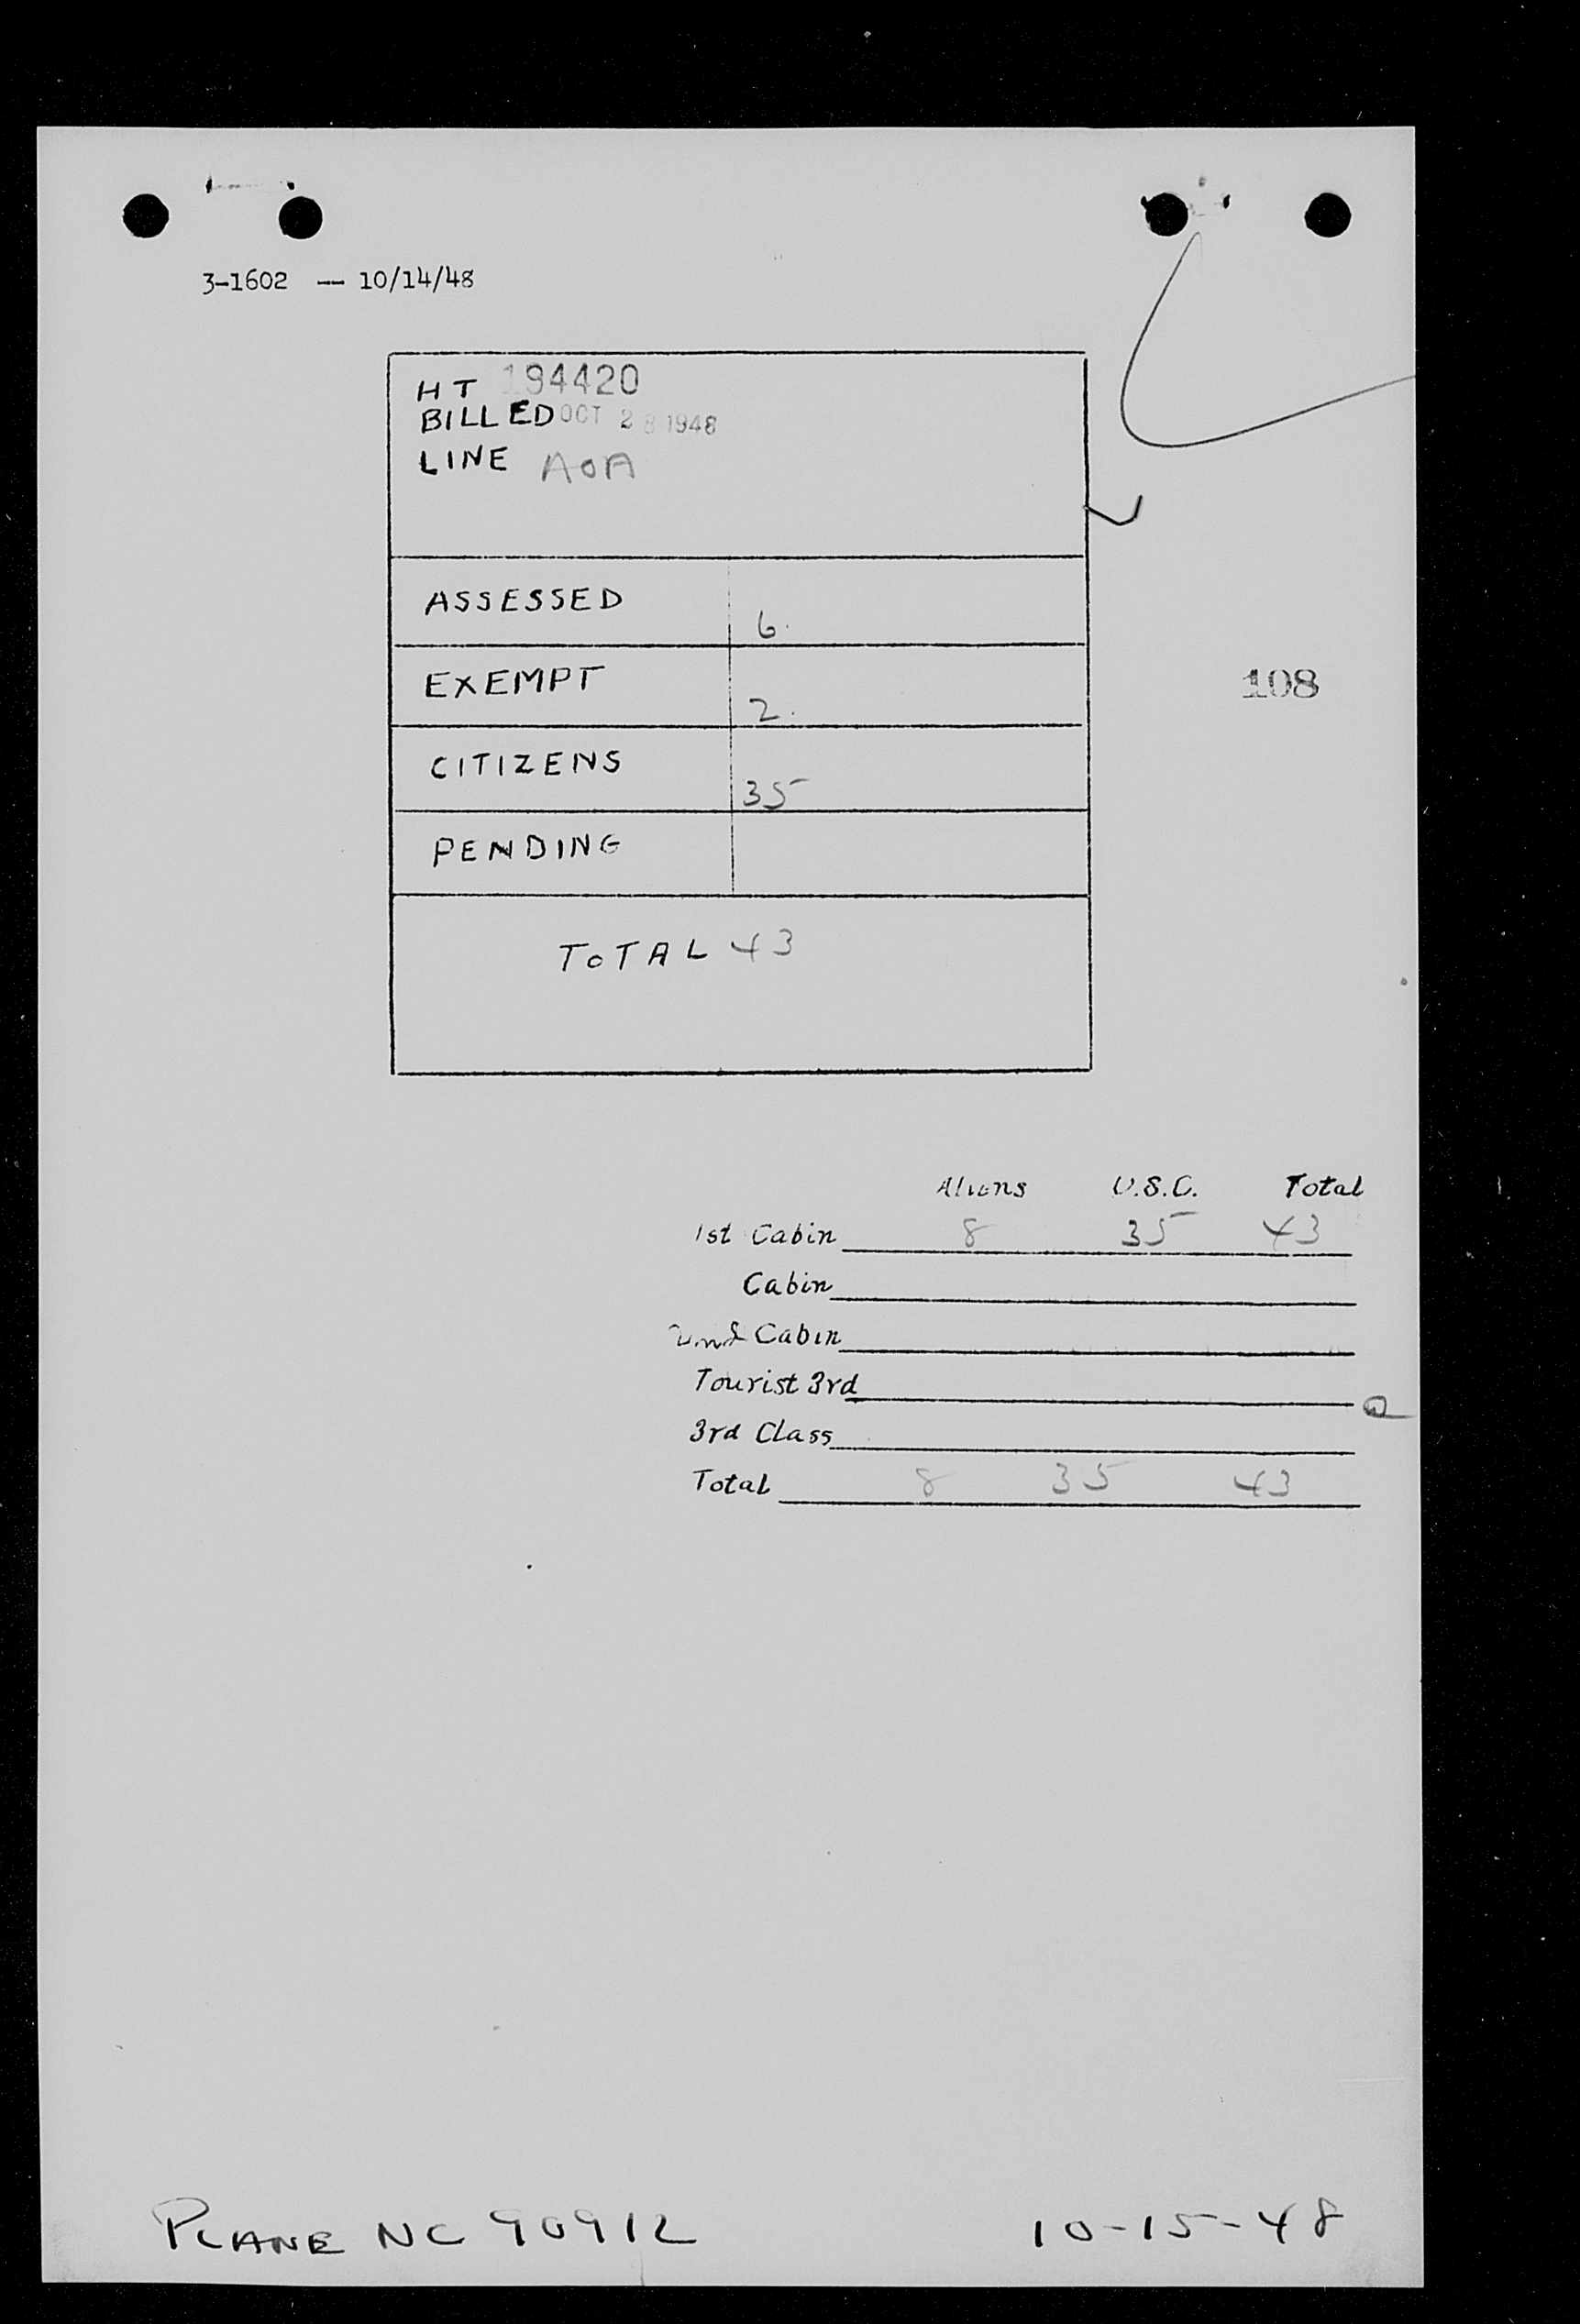 3-1602 -- 10/14/48
HT 194420
BILLED OCT 28 1948
LINE AOA
ASSESSED 6.
EXEMPT 2.
108
CITIZENS 35
PENDING
TOTAL 43
Aliens U.S.C. Total
1st Cabin 8 35 43
Cabin
2nd Cabin
Tourist 3rd
3rd Class
Total 8 35 43
PLANE NC 90912 10-15-48